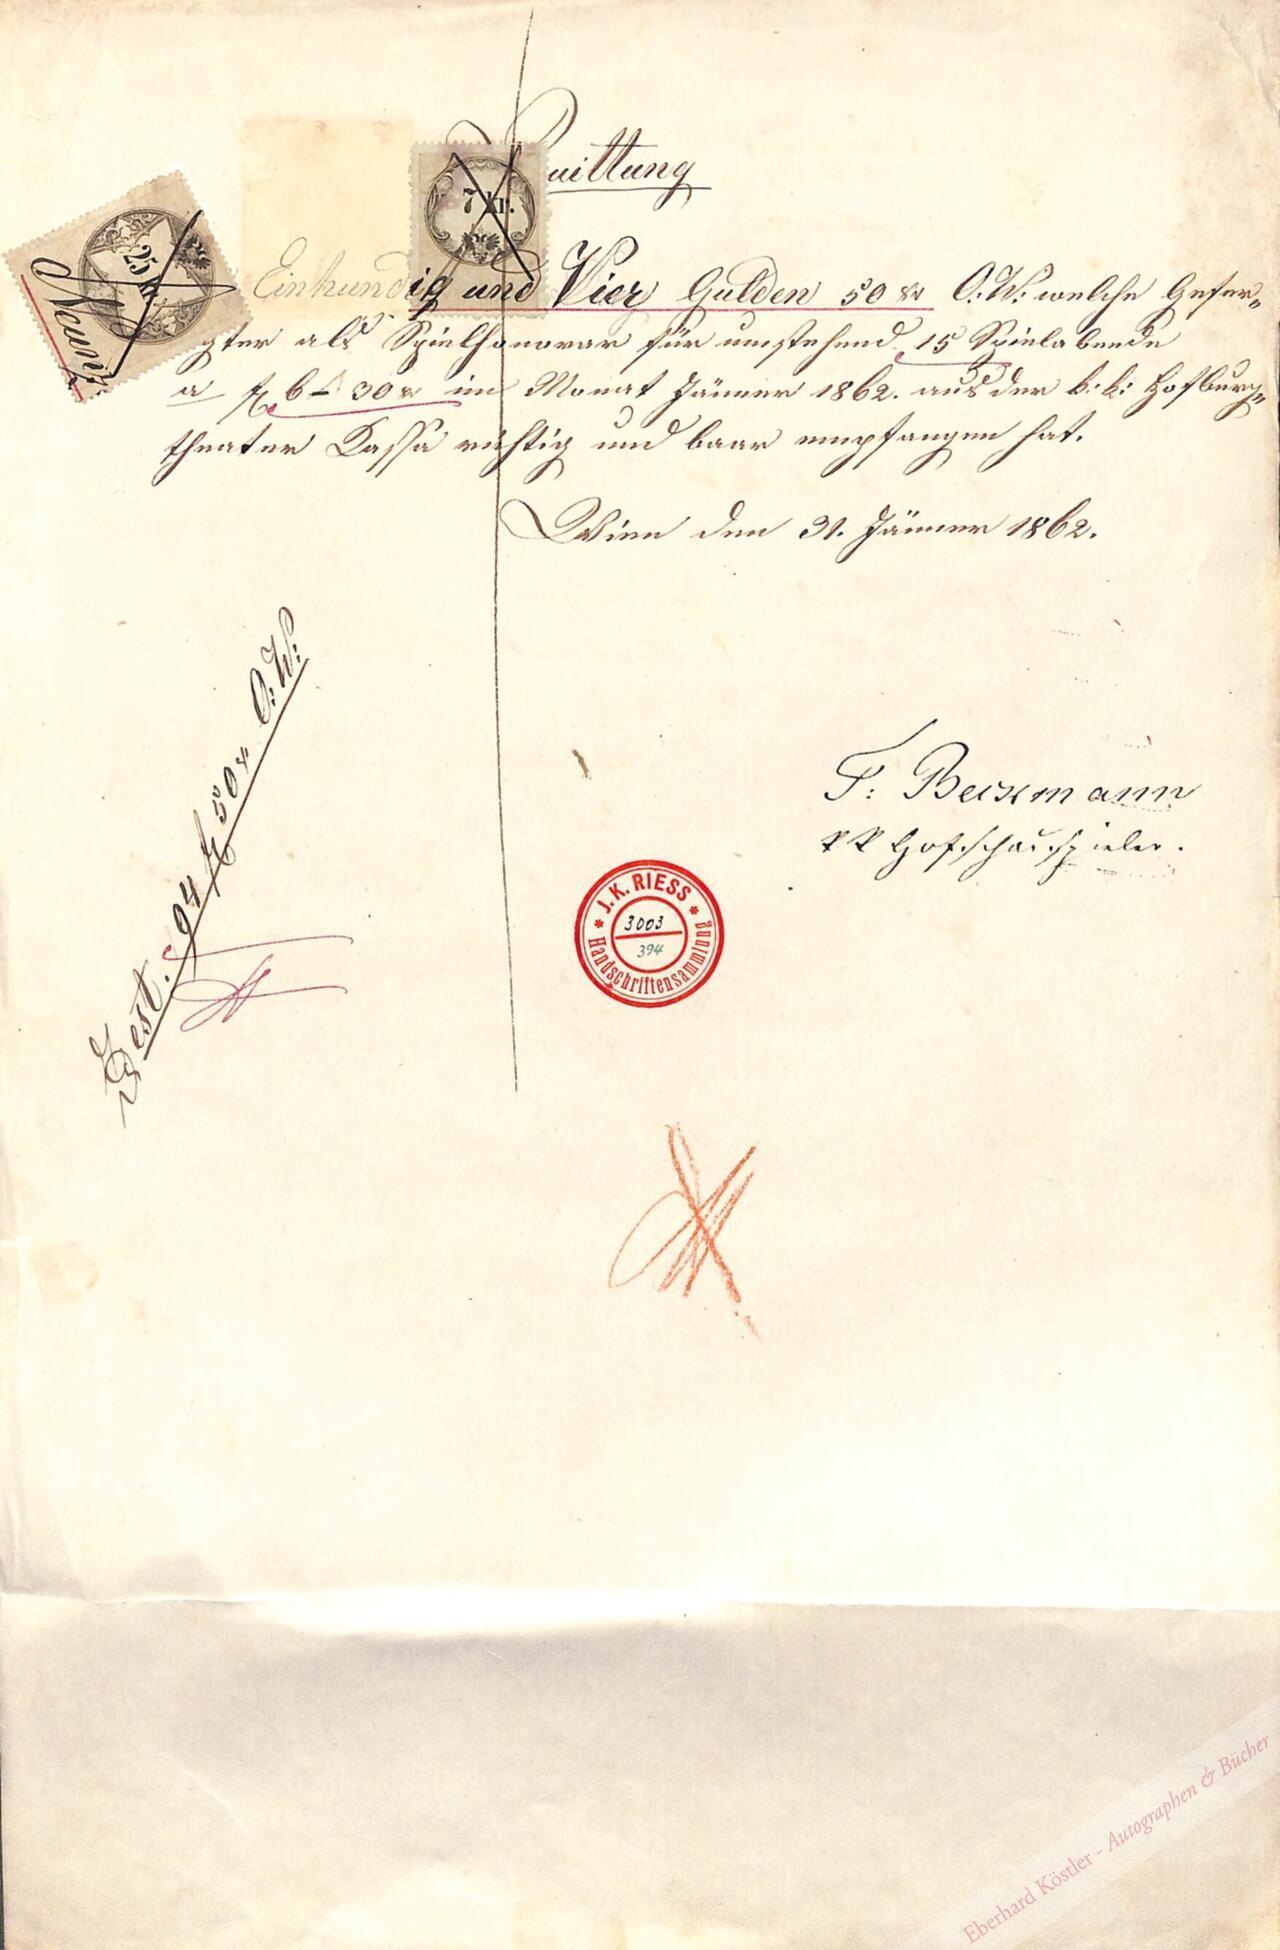 Quittung
7 kr.
25 kr.
Neunzig und Vier Gulden 50 xr O: W: welche Gefer„
gter als Spielhonorar für umstehend 15 Spielabende
a f 6 - 30 xr im Monat Jänner 1862. aus der k: k: Hofburg„
theater Cassa richtig und baar empfangen hat.
Wien den 31. Jänner 1862.
Best. 94 f 50 xr O: W:
F: Beckmann
k k Hofschauspieler.
* J. K. RIESS *
3003
394
Handschriftensammlung
Eberhard Köstler - Autographen & Bücher